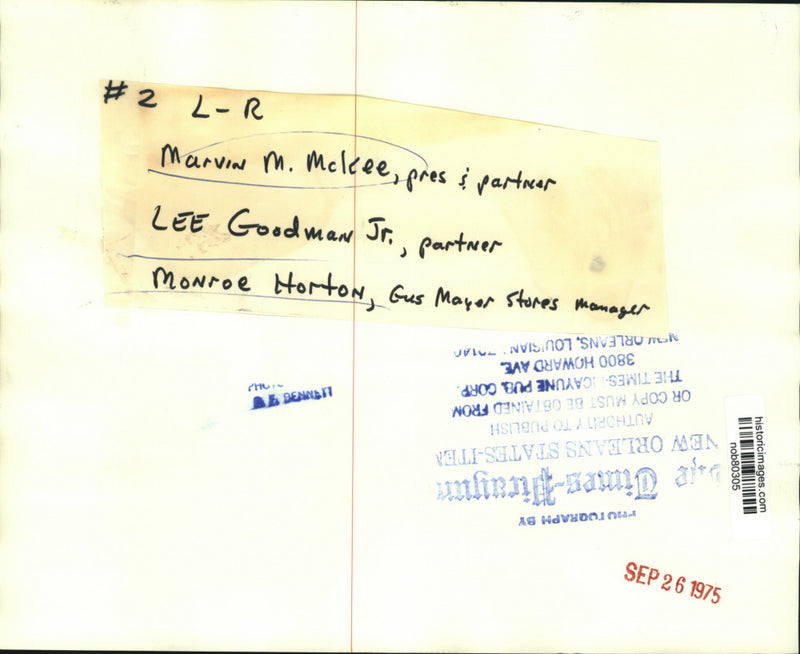 # 2 L-R
Marvin M. McKee, pres & partner
LEE Goodman Jr., partner
Monroe Horton, Gus Mayer Stores manager
PHOTO
BENNETT
PHOTOGRAPH BY
The Times-Picayune
NEW ORLEANS STATES-ITEM
AUTHORITY TO PUBLISH
OR COPY MUST BE OBTAINED FROM
THE TIMES-PICAYUNE PUB. CORP.
3800 HOWARD AVE.
NEW ORLEANS, LOUISIANA 70140
historicimages.com
nob80305
SEP 26 1975